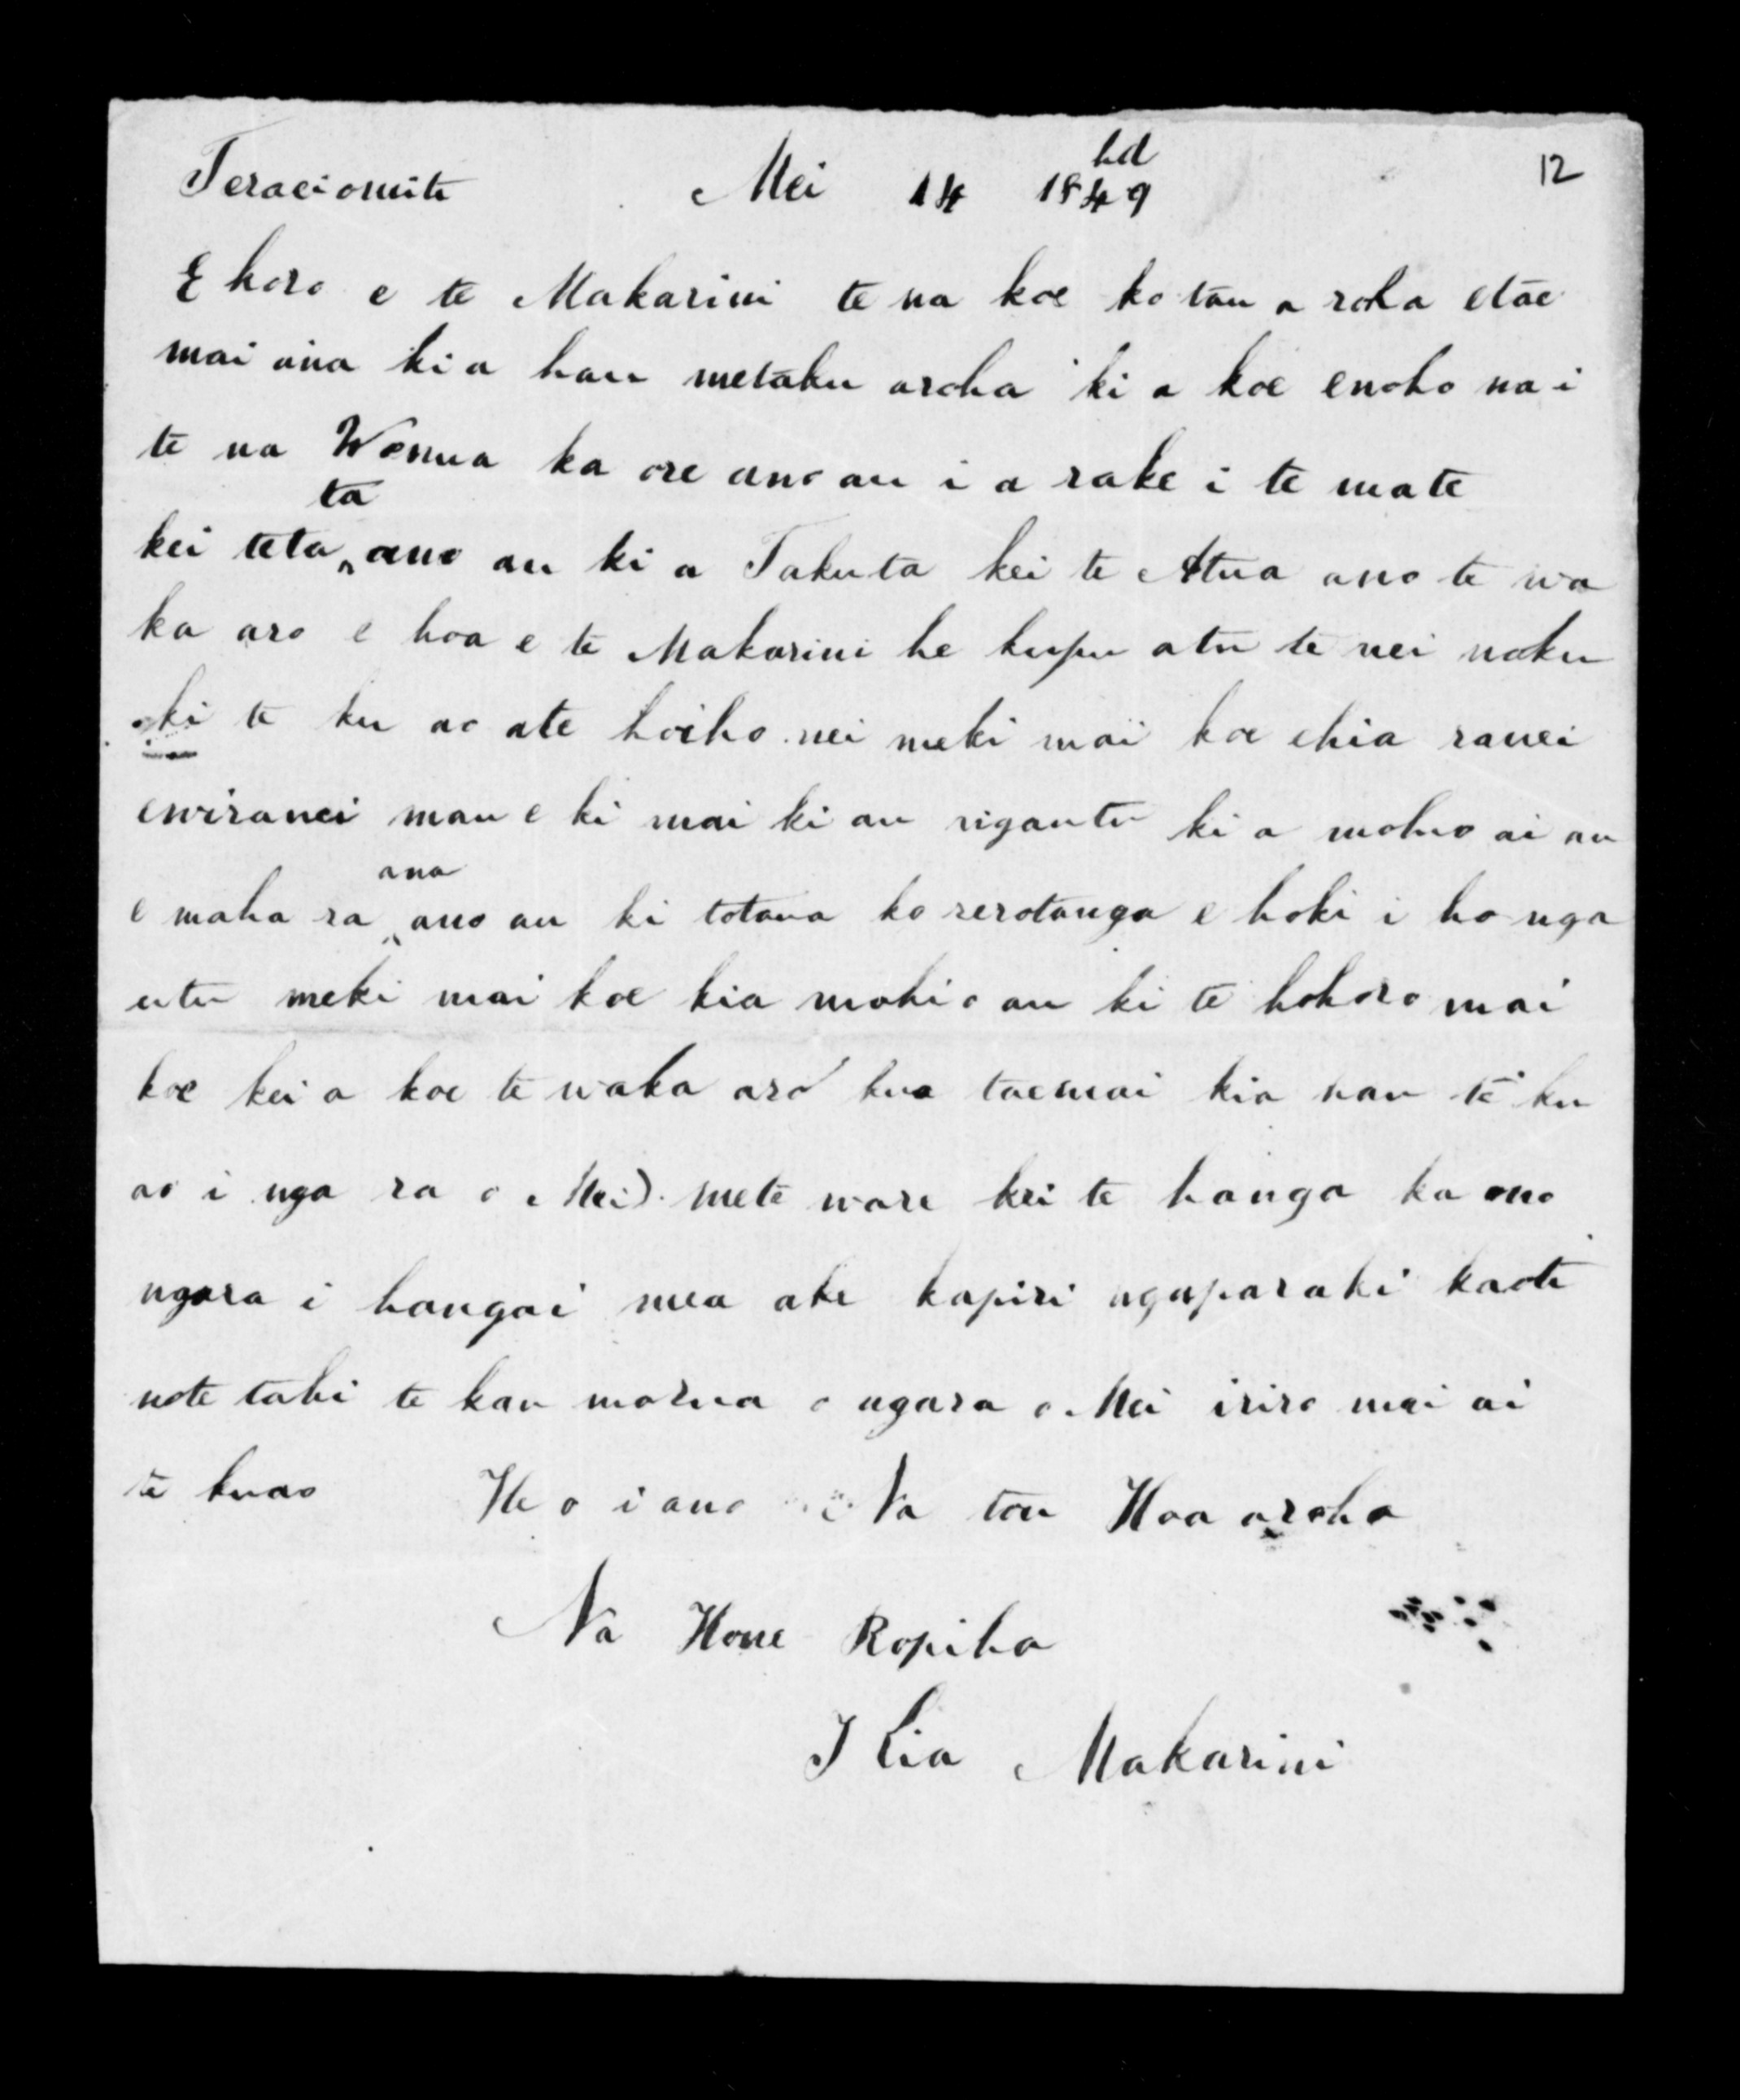 12
hd
Teraeiomite Mei 14 1849
E koro e te Makarini te na koe ko tau a roha etae
mai ana ki a hau metaku aroha ki a koe enoho na i
te na Wenua ka ore ano au i a rake i te mate
kei teta ta ano au ki a Takuta kei te Atua ano te wa
ka aro e hoa e te Makarini he kupu atu te nei naku
ki te ku ao ate hoiho nei meki mai koe ehia ranei
ewiranei mau e ki mai ki au rigantu ki a mohio ai au
e maha ra ana ano au ki totaua ko rerotanga e hoki i ho nga
utu meki mai koe kia mohio au ki te hohoro mai
koe kei a koe te waka aro kua taemai kia hau te ku
ao i nga ra o Mei). mete ware kei te hanga ka ono
ngara i hangai mea ake kapiri ngaparaki kaoti
note tahi te kau marua o ngara o Mei iriro mai ai
te kuao He o i ano Na tou Hoa aroha
Na Hone Ropiha
I Kia Makarini